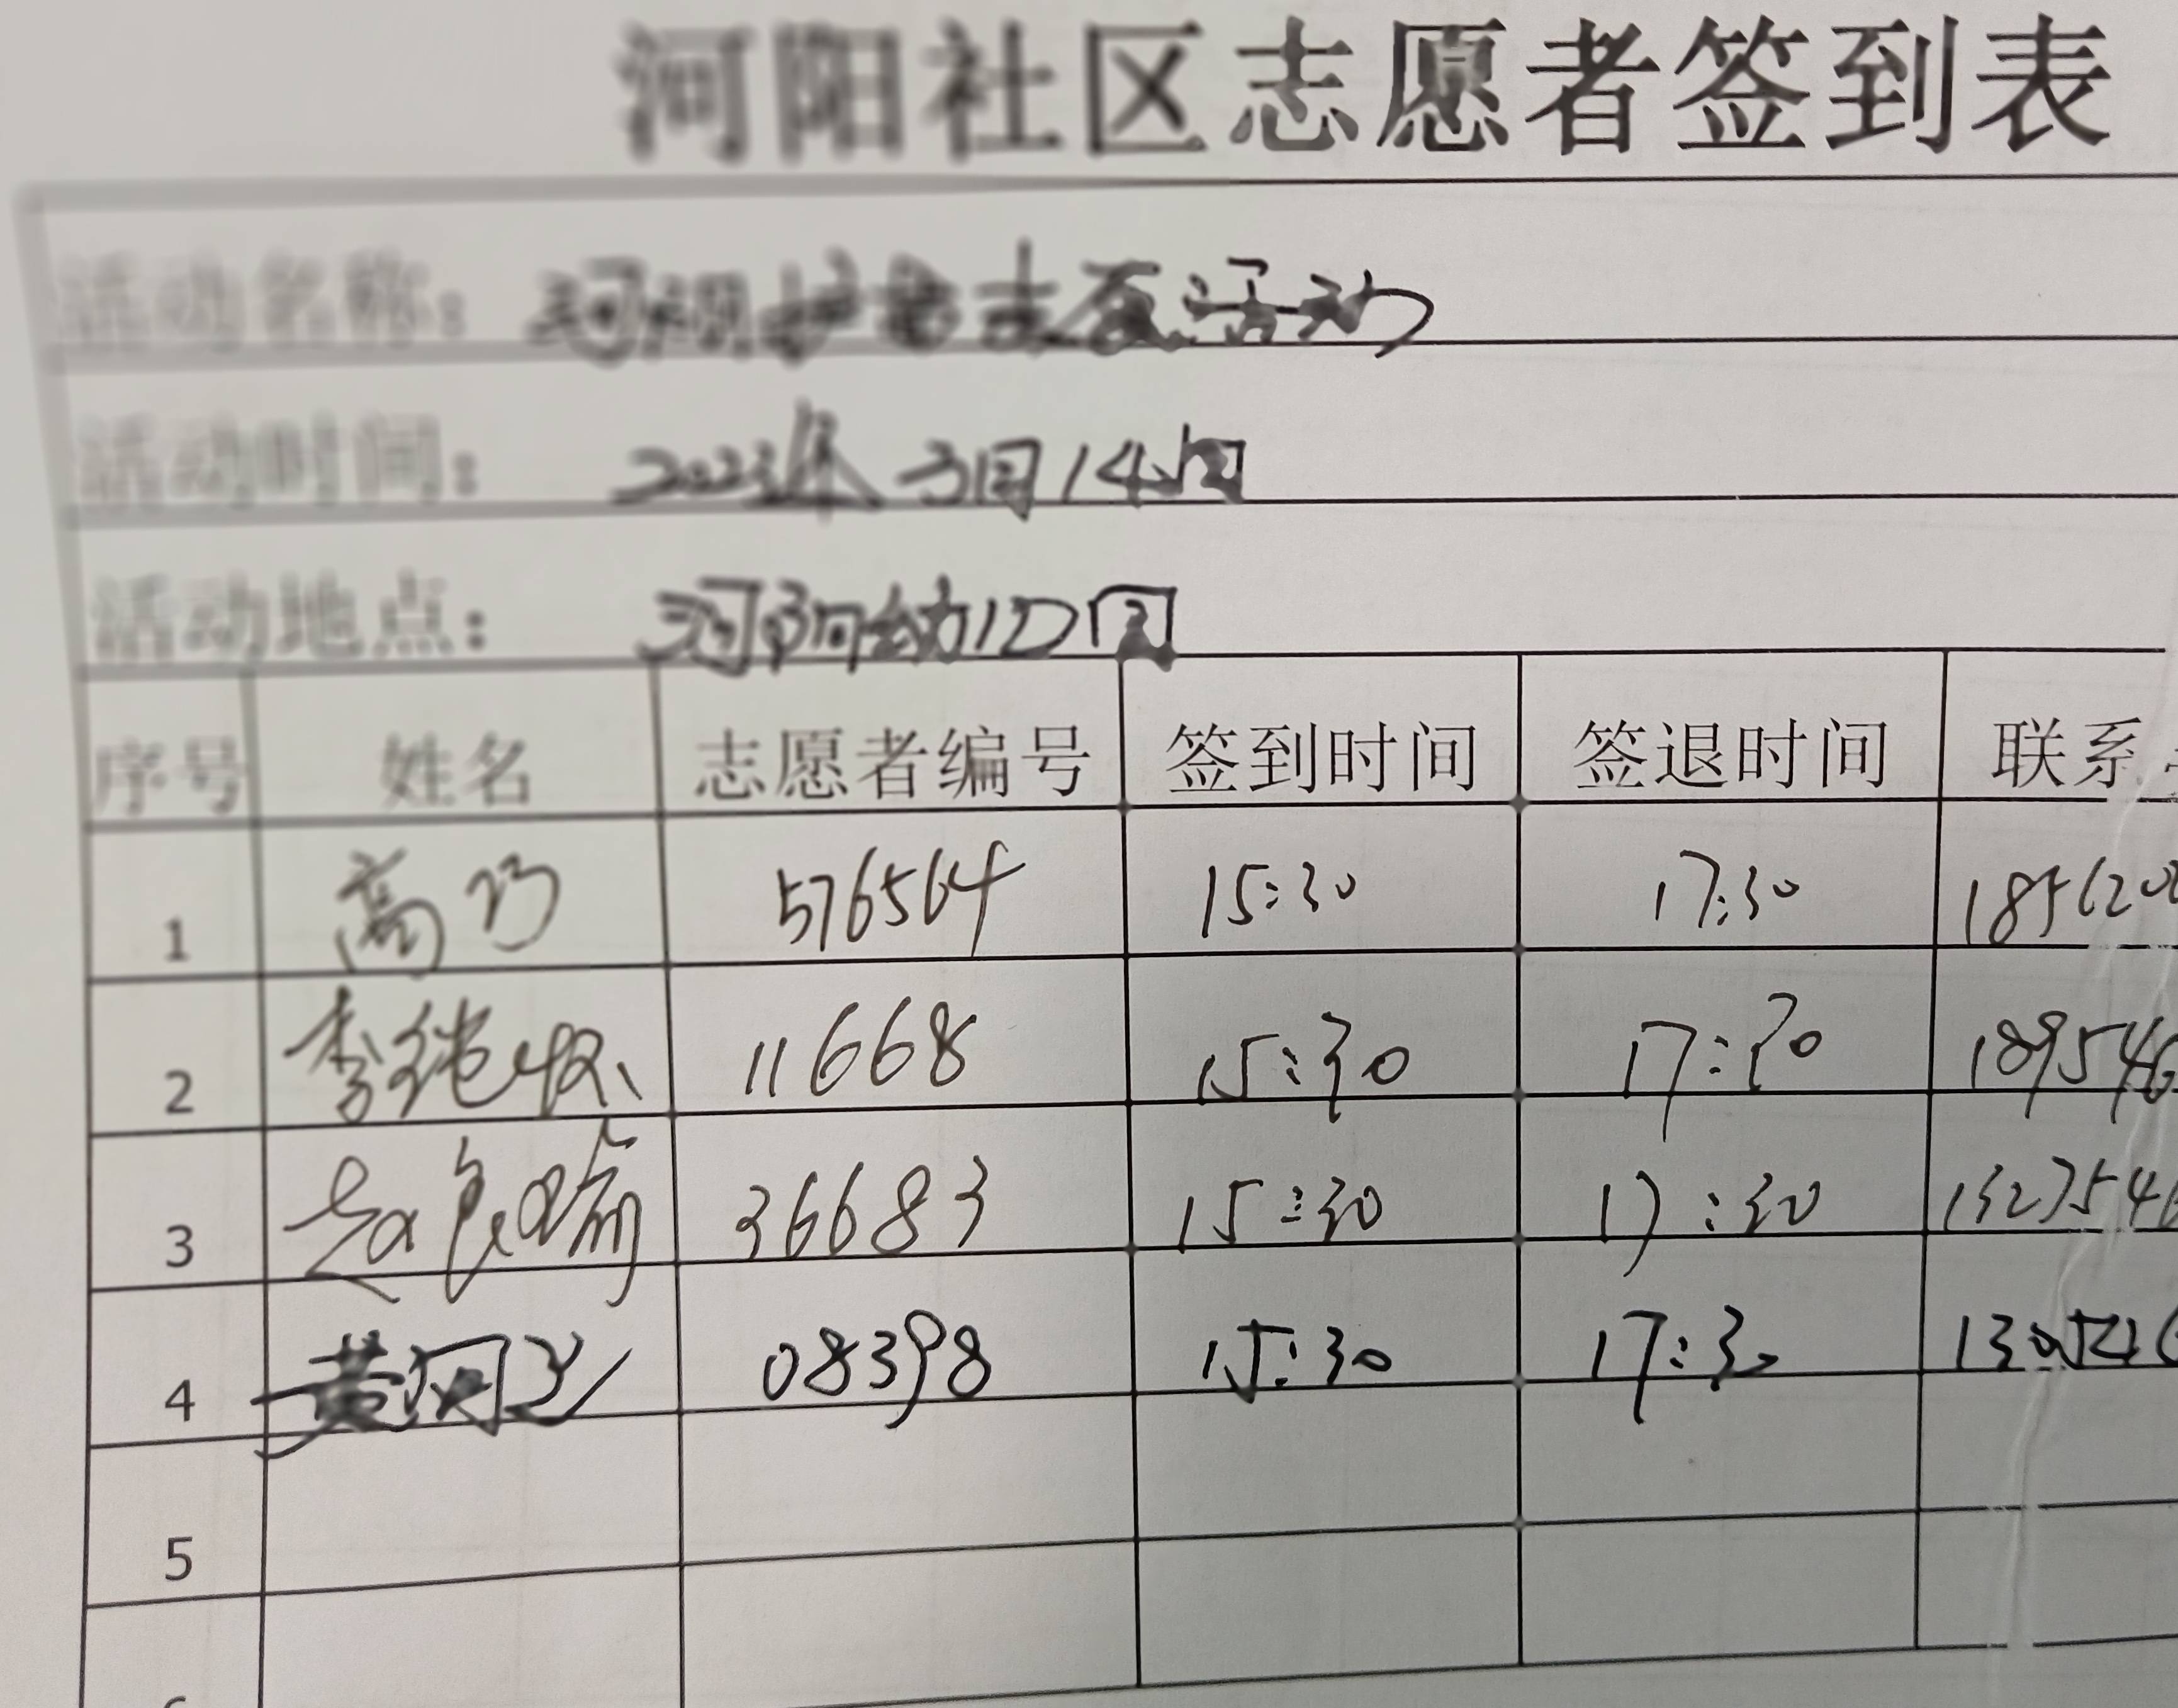 河阳社区志愿者签到表
活动名称： 志愿活动
活动时间： 2023年3月14
活动地点： 河阳幼儿园
序号 姓名 志愿者编号 签到时间 签退时间 联系
1 高巧 576564 15:30 17:30 1856200
2 李 11668 15:30 17:30 189546
3 赵 36683 15:30 17:30 1327546
4 黄 08398 15:30 17:30 130
5